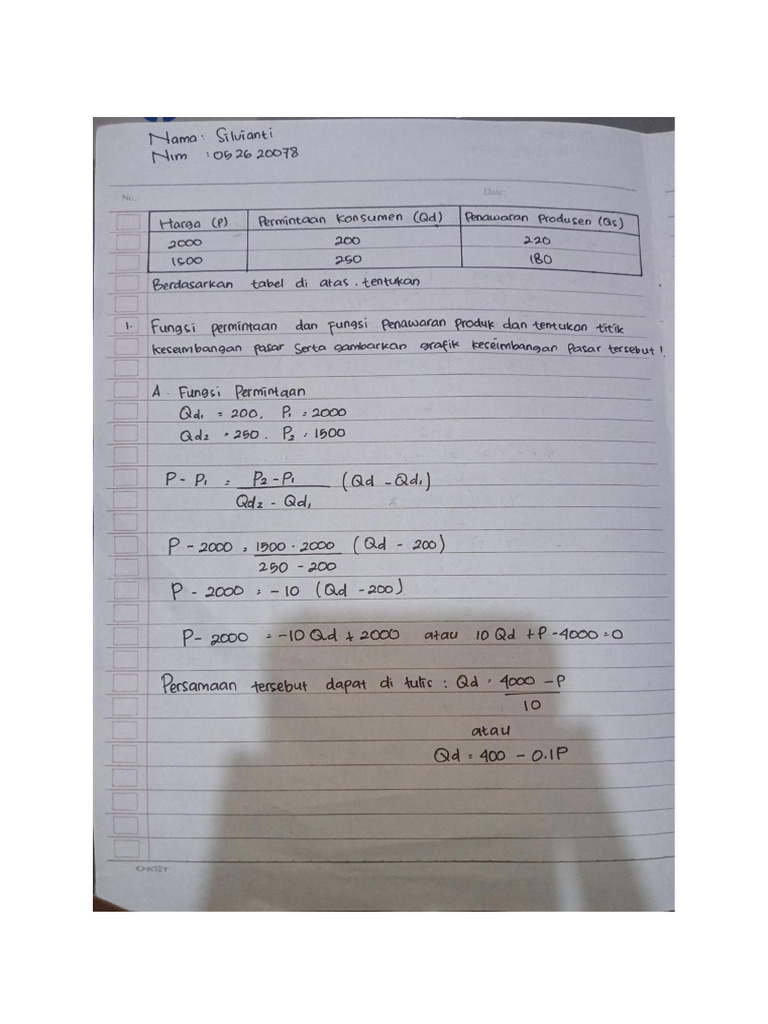 Nama: Silvianti
Nim : 052620078
No.:
Date:
Harga (P) Permintaan Konsumen (Qd) Penawaran Produsen (Qs)
2000 200 220
1500 250 180
Berdasarkan tabel di atas. tentukan
1. Fungsi permintaan dan fungsi penawaran produk dan tentukan titik
keseimbangan pasar serta gambarkan grafik keseimbangan pasar tersebut!
A. Fungsi Permintaan
Qd₁ = 200, P₁ = 2000
Qd₂ = 250. P₂ = 1500
P - P₁ = P₂ - P₁ (Qd - Qd₁)
Qd₂ - Qd₁
P - 2000 = 1500 - 2000 (Qd - 200)
250 - 200
P - 2000 = -10 (Qd - 200)
P - 2000 = -10 Qd + 2000 atau 10 Qd + P - 4000 = 0
Persamaan tersebut dapat di tulis : Qd = 4000 - P
10
atau
Qd = 400 - 0.1P